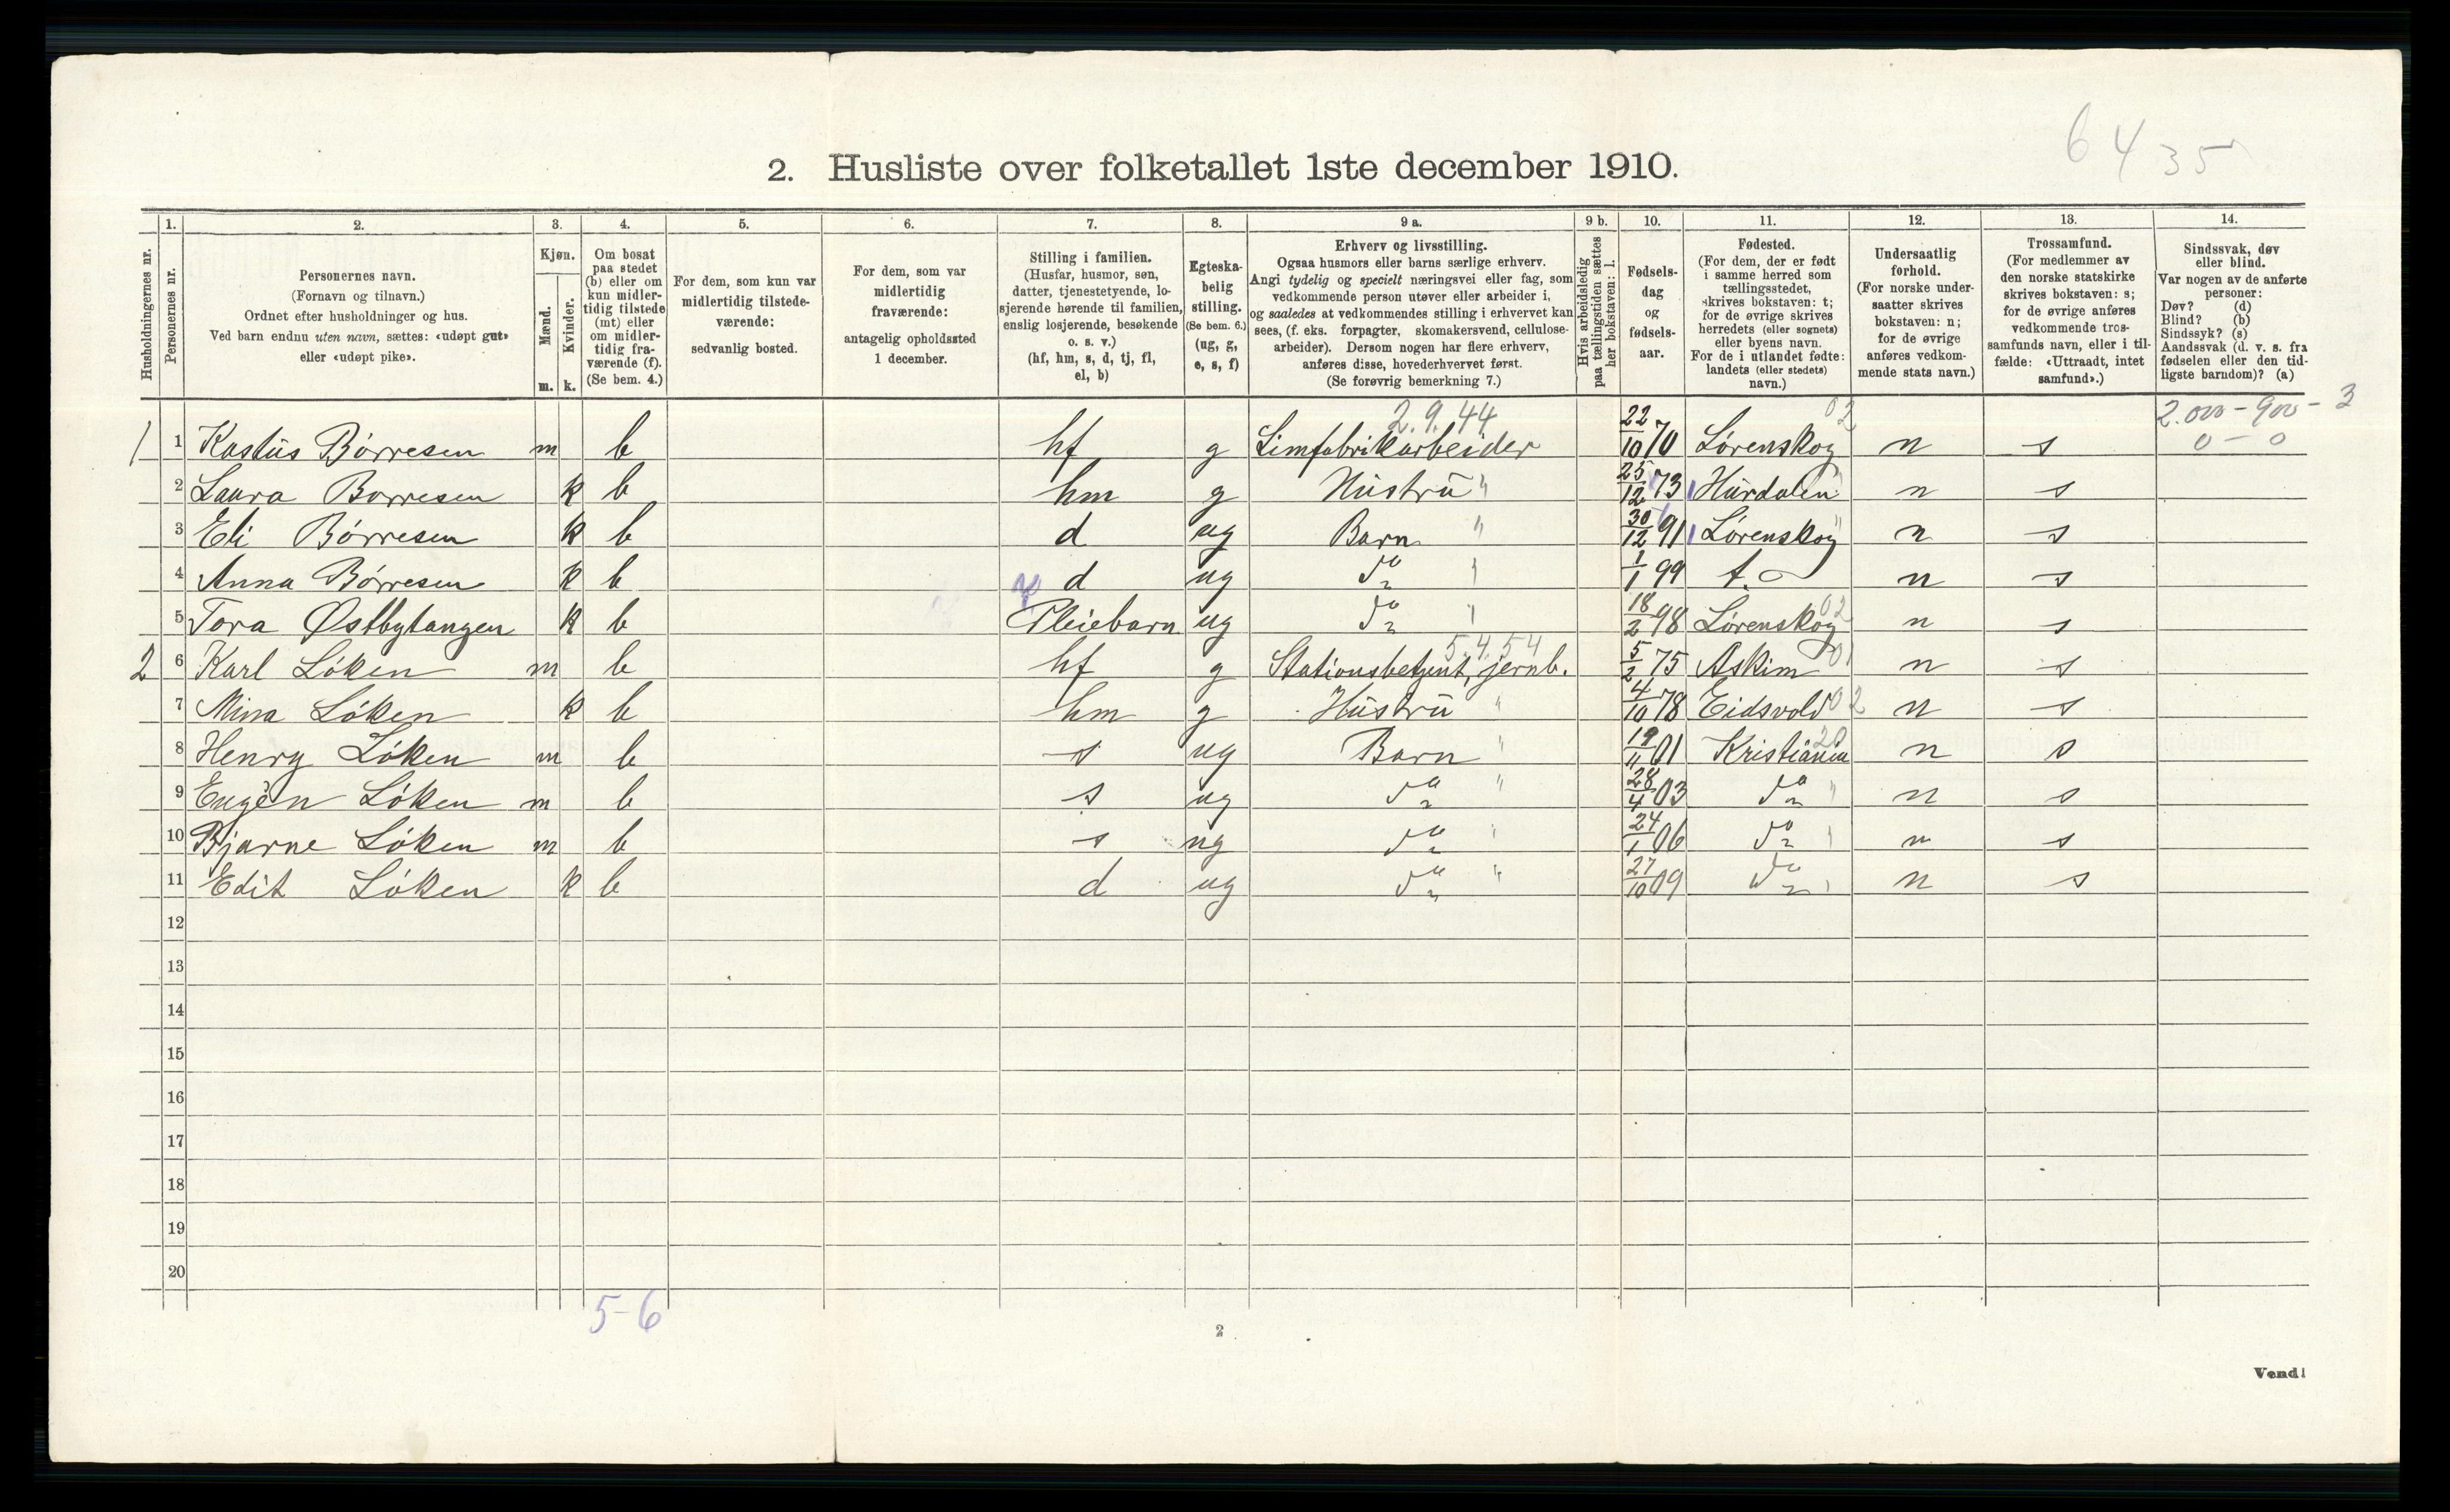 6435
2. Husliste over folketallet 1ste december 1910.
Husholdningernes nr.
1. Personernes nr.
2. Personernes navn.
(Fornavn og tilnavn.)
Ordnet efter husholdninger og hus.
Ved barn endnu uten navn, sættes: «udøpt gut»
eller «udøpt pike».
3. Kjøn.
Mænd. m.
Kvinder. k.
4. Om bosat
paa stedet
(b) eller om
kun midler-
tidig tilstede
(mt) eller
om midler-
tidig fra-
værende (f).
(Se bem. 4.)
5. For dem, som kun var
midlertidig tilstede-
værende:
sedvanlig bosted.
6. For dem, som var
midlertidig
fraværende:
antagelig opholdssted
1 december.
7. Stilling i familien.
(Husfar, husmor, søn,
datter, tjenestetyende, lo-
sjerende hørende til familien,
enslig losjerende, besøkende
o. s. v.)
(hf, hm, s, d, tj, fl,
el, b)
8. Egteska-
belig
stilling.
(Se bem. 6.)
(ug, g,
e, s, f)
9 a. Erhverv og livsstilling.
Ogsaa husmors eller barns særlige erhverv.
Angi tydelig og specielt næringsvei eller fag, som
vedkommende person utøver eller arbeider i,
og saaledes at vedkommendes stilling i erhvervet kan
sees, (f. eks. forpagter, skomakersvend, cellulose-
arbeider). Dersom nogen har flere erhverv,
anføres disse, hovederhvervet først.
(Se forøvrig bemerkning 7.)
9 b. Hvis arbeidsledig
paa tællingstiden sættes
her bokstaven: l.
10. Fødsels-
dag
og
fødsels-
aar.
11. Fødested.
(For dem, der er født
i samme herred som
tællingsstedet,
skrives bokstaven: t;
for de øvrige skrives
herredets (eller sognets)
eller byens navn.
For de i utlandet fødte:
landets (eller stedets)
navn.)
12. Undersaatlig
forhold.
(For norske under-
saatter skrives
bokstaven: n;
for de øvrige
anføres vedkom-
mende stats navn.)
13. Trossamfund.
(For medlemmer av
den norske statskirke
skrives bokstaven: s;
for de øvrige anføres
vedkommende tros-
samfunds navn, eller i til-
fælde: «Uttraadt, intet
samfund».)
14. Sindssvak, døv
eller blind.
Var nogen av de anførte
personer:
Døv? (d)
Blind? (b)
Sindssyk? (s)
Aandssvak (d. v. s. fra
fødselen eller den tid-
ligste barndom)? (a)
2.9.44 02 2.000-900-3
1 1 Kastus Børresen m b hf g Limfabrikarbeider 22/10 70 Lørenskog n s 0-0
2 Laura Borresen k b hm g Hustru " 25/12 73 Hurdalen n s
3 Eli Børresen k b d ug Barn " 30/12 91 Lørenskog " n s
4 Anna Børresen k b d ug do " 1/1 99 t. n s
5 Tora Østbytangen k b Pleiebarn ug do " 18/2 98 Lørenskog 02 n s
5.4.54
2 6 Karl Løken m b hf g Stationsbetjent, jernb. 5/2 75 Askim 01 n s
7 Mina Løken k b hm g Hustru " 4/10 78 Eidsvold 02 n s
8 Henry Løken m b s ug Barn " 19/11 01 Kristiania 20 n s
9 Eugèn Løken m b s ug do " 28/4 03 do " n s
10 Bjarne Løken m b s ug do " 24/1 06 do " n s
11 Edit Løken k b d ug do " 27/10 09 do " n s
12
13
14
15
16
17
18
19
20
5-6
2
Vend!